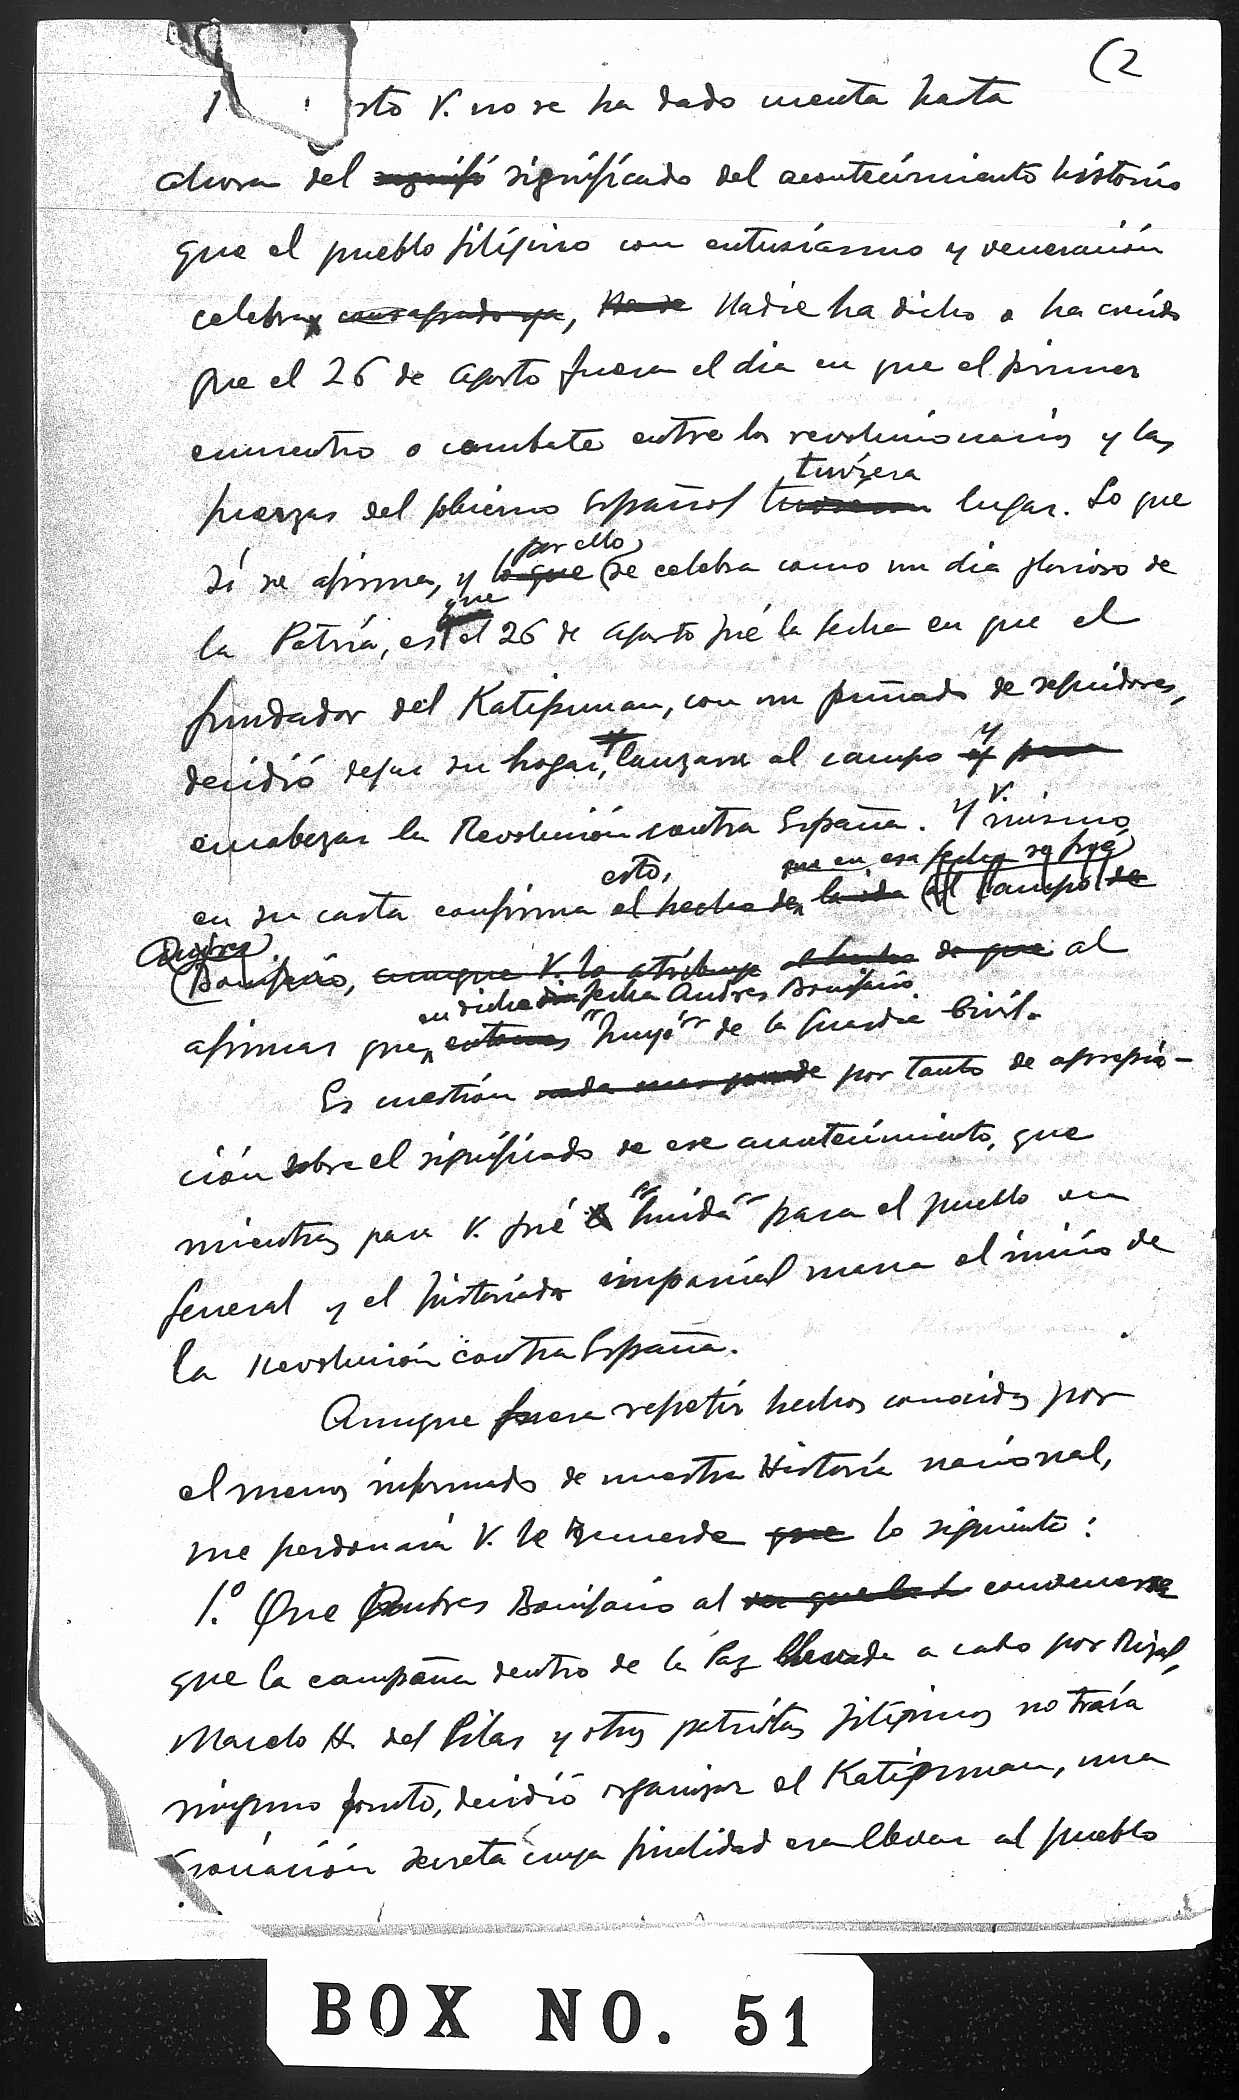 (2
sto V. no se ha dado cuenta hasta
ahora del signifi significado del acontecimiento histórico
que el pueblo filipino con entusiasmo y veneración
celebra consagrado ya, Nadie Nadie ha dicho o ha creído
que el 26 de agosto fuera el dia en que el primer
encuentro o combate entre los revolucionarios y las
tuviera
fuerzas del gobierno Español tuvieron lugar. Lo que
por ello
sí se afirma, y lo que se celebra como un dia glorioso de
que
la Patria, es el 26 de agosto fué la fecha en que el
fundador del Katipunan, con un puñado de seguidores,
y
decidió dejar su hogar, lanzarse al campo y para
V.
encabezar la Revolución contra España. Y mismo
esto, que en esa fecha se fué
en su carta confirma el hecho de la ida al campo de
Andres
Bonifacio, aunque V. lo atribuye el hecho de que al
en dicha dia fecha Andres Bonifacio
afirmar que entonces "huyó" de la Guardia Civil.
Es cuestión nada mas puede por tanto de aprecia-
ción sobre el significado de ese acontecimiento, que
mientras para V. fué "huida" para el pueblo en
general y el historiador imparcial marca el inicio de
la Revolución contra España.
Aunque fuera repetir hechos conocidos por
el menos informado de nuestra Historia nacional,
me perdonará V. le recuerde que lo siguiente:
1.º Que Andres Bonifacio al ver que la convencerse
que la campaña dentro de la Paz llevada a cabo por Rizal,
Marcelo H. del Pilar y otros patriotas filipinos no traía
ninguno fruto, decidió organizar el Katipunan, una
asociación secreta cuya finalidad era llevar al pueblo
BOX NO. 51